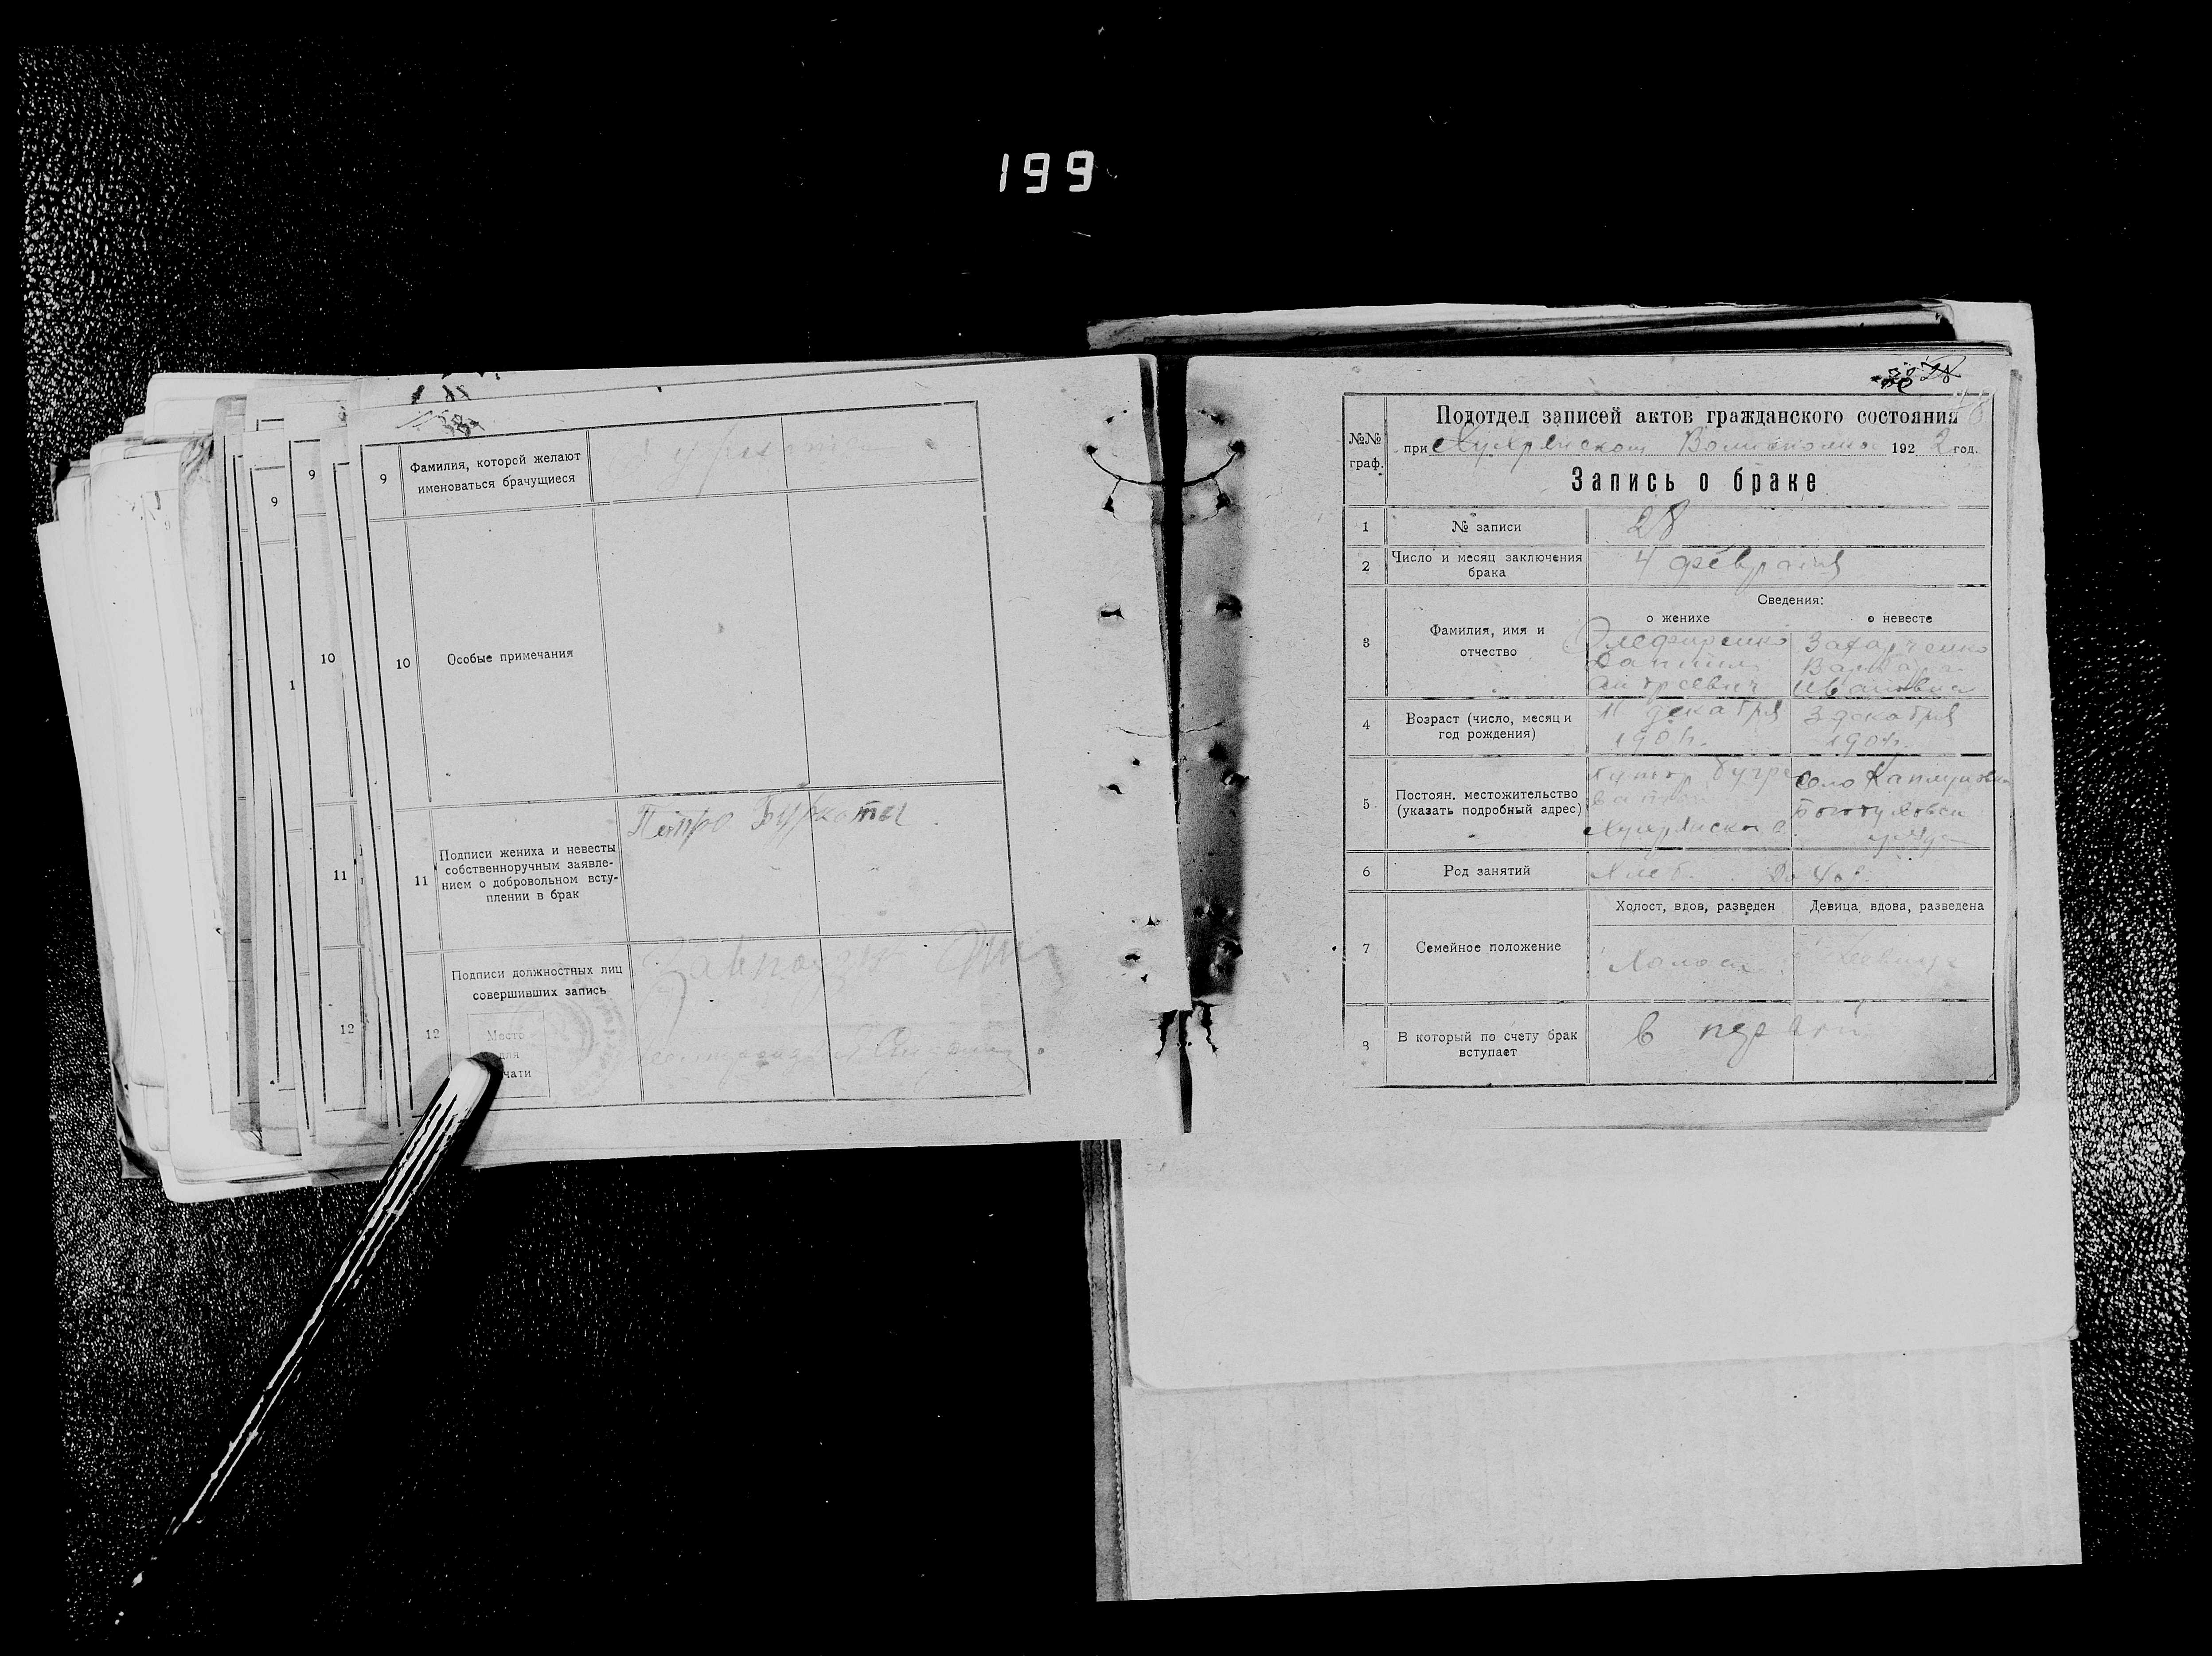 199
9
9
1
10
11
12
9
Фамилия, которой желают
именоваться брачущиеся
10
Особые примечания
11
Подписи жениха и невесты
собственноручным заявле-
нием о добровольном всту-
плении в брак
Петро
12
Подписи должностных лиц
совершивших запись
Место
для
чати
28
№№
граф.
Подотдел записей актов гражданского состояния
при Волисполкома 192 2 год.
Запись о браке
1
№ записи
28
2
Число и месяц заключения
брака
4 февраля
3
Фамилия, имя и
отчество
Сведения:
о женихе
о невесте
Олефиренко
Даниил
Андреевич
Захарченко
Варвара
Ивановна
4
Возраст (число, месяц и
год рождения)
декабря
3 декабря
5
Постоян. местожительство
(указать подробный адрес)
Хутор
Село Каплуновка
Богодуховск
6
Род занятий
Хлеб.
7
Семейное положение
Холост, вдов, разведен
Девица, вдова, разведена
Холост
Девица
8
В который по счету брак
вступает
в первый